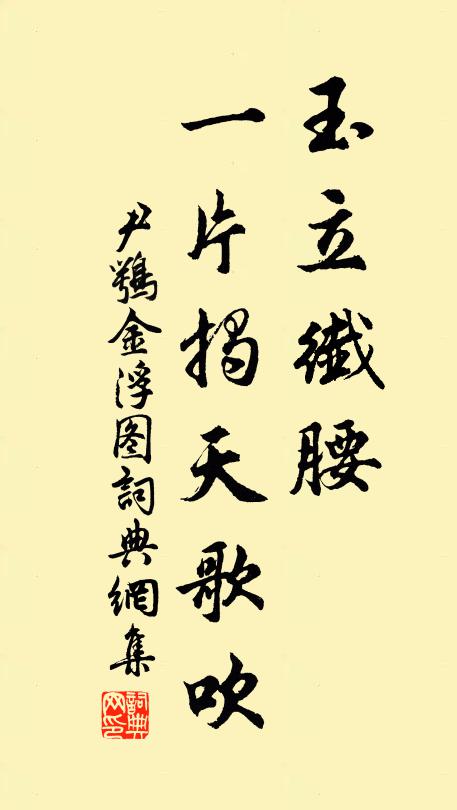 玉立纖腰
一片揭天歌吹
尹鶚金浮图詞典網集
詞典
网印